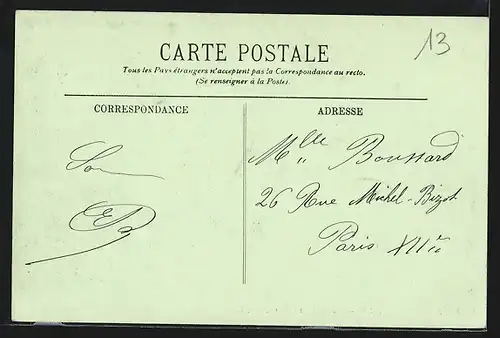 13
CARTE POSTALE
Tous les Pays étrangers n'acceptent pas la Correspondance au recto.
(Se renseigner à la Poste).
CORRESPONDANCE
ADRESSE
Mlle Boussard
26 Rue Michel-Bizot
Paris XIIè
EB